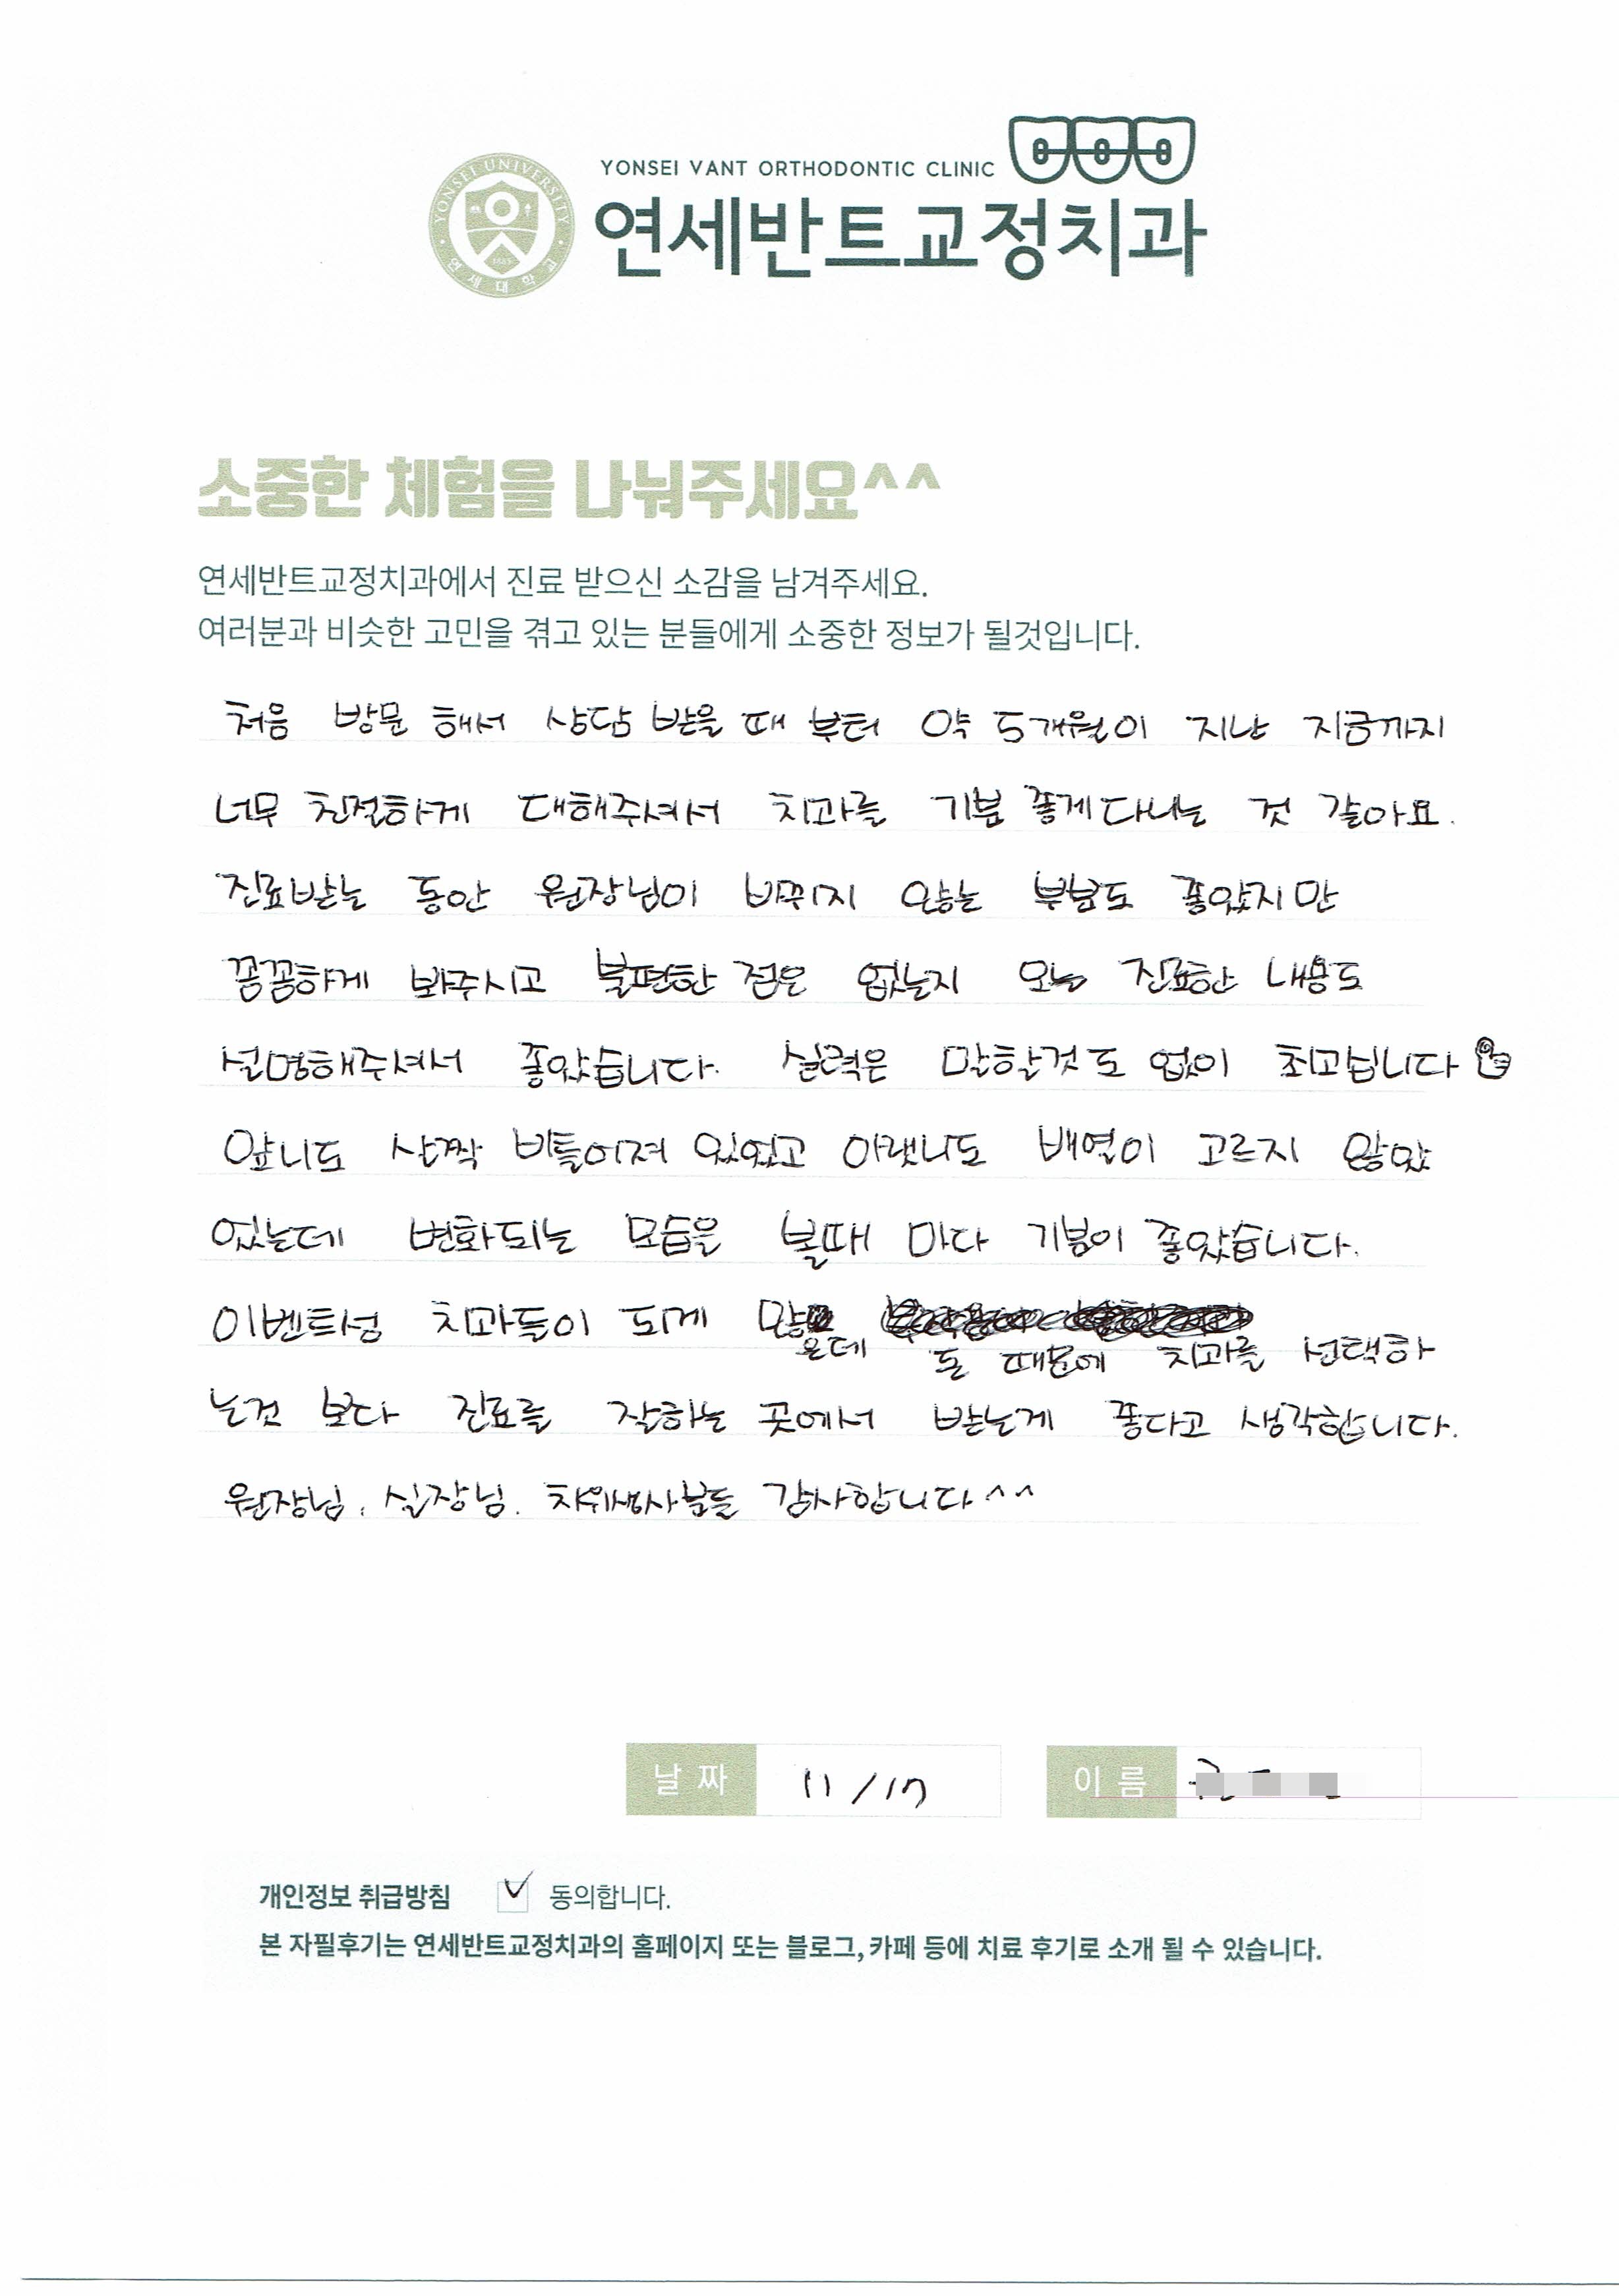 YONSEI VANT ORTHODONTIC CLINIC
연세반트교정치과
YONSEI UNIVERSITY
1885
연세대학교
소중한 체험을 나눠주세요^^
연세반트교정치과에서 진료 받으신 소감을 남겨주세요.
여러분과 비슷한 고민을 겪고 있는 분들에게 소중한 정보가 될것입니다.
처음 방문 해서 상담 받을 때 부터 약 5개월이 지난 지금까지
너무 친절하게 대해주셔서 치과를 기분 좋게 다니는 것 같아요.
진료받는 동안 원장님이 바뀌지 않는 부분도 좋았지만
꼼꼼하게 봐주시고 불편한 점은 없는지 오늘 진료한 내용도
설명해주셔서 좋았습니다. 실력은 말할것도 없이 최고십니다
앞니도 살짝 비틀어져 있었고 아랫니도 배열이 고르지 않았
었는데 변화되는 모습을 볼때 마다 기분이 좋았습니다.
이벤트성 치과들이 되게 많
은데 돈 때문에 치과를 선택하
는것 보다 진료를 잘하는 곳에서 받는게 좋다고 생각합니다.
원장님, 실장님. 치위생사분들 감사합니다^^
날짜 11/17 이름
개인정보 취급방침 동의합니다.
본 자필후기는 연세반트교정치과의 홈페이지 또는 블로그, 카페 등에 치료 후기로 소개 될 수 있습니다.